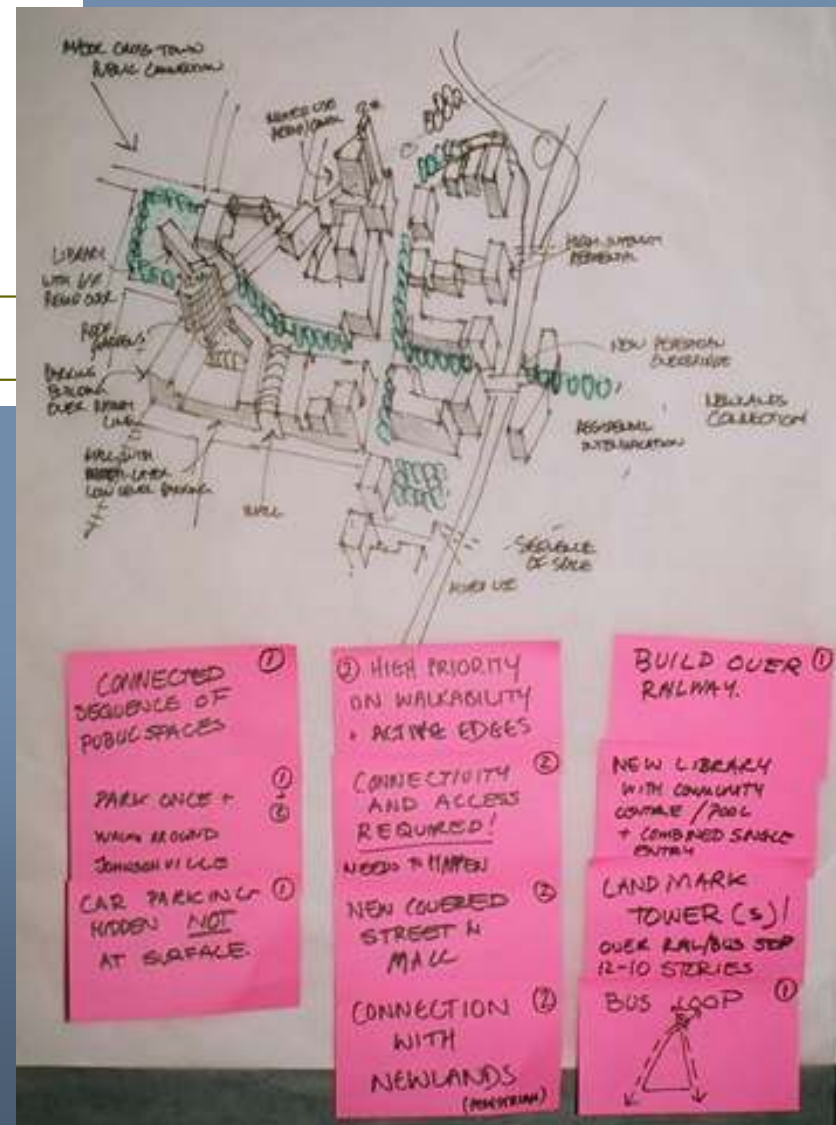 MAJOR CROSS-TOWN
PUBLIC CONNECTION
MIXED USE
LIBRARY
WITH
ROOF
GARDENS
PARKING
BUILDING
OVER
LINE
MALL WITH
LOW LEVEL PARKING
MALL
HIGH INTENSITY
RESIDENTIAL
NEW PEDESTRIAN
OVERBRIDGE
NEWLANDS
CONNECTION
RESIDENTIAL
INTENSIFICATION
SEQUENCE
OF SPACE
MIXED USE
CONNECTED ①
SEQUENCE OF
PUBLIC SPACES
PARK ONCE + ①
+ ②
WALK AROUND
JOHNSONVILLE
CAR PARKING ①
HIDDEN NOT
AT SURFACE.
② HIGH PRIORITY
ON WALKABILITY
+ ACTIVE EDGES
CONNECTIVITY ②
AND ACCESS
REQUIRED!
NEEDS TO HAPPEN
NEW COVERED ②
STREET IN
MALL
CONNECTION ②
WITH
NEWLANDS
(PEDESTRIAN)
BUILD OVER ①
RAILWAY.
NEW LIBRARY
WITH COMMUNITY
CENTRE / POOL
+ COMBINED SINGLE
ENTRY
LANDMARK
TOWER(S)/
OVER RAIL/BUS STOP
12-10 STORIES
BUS LOOP ①